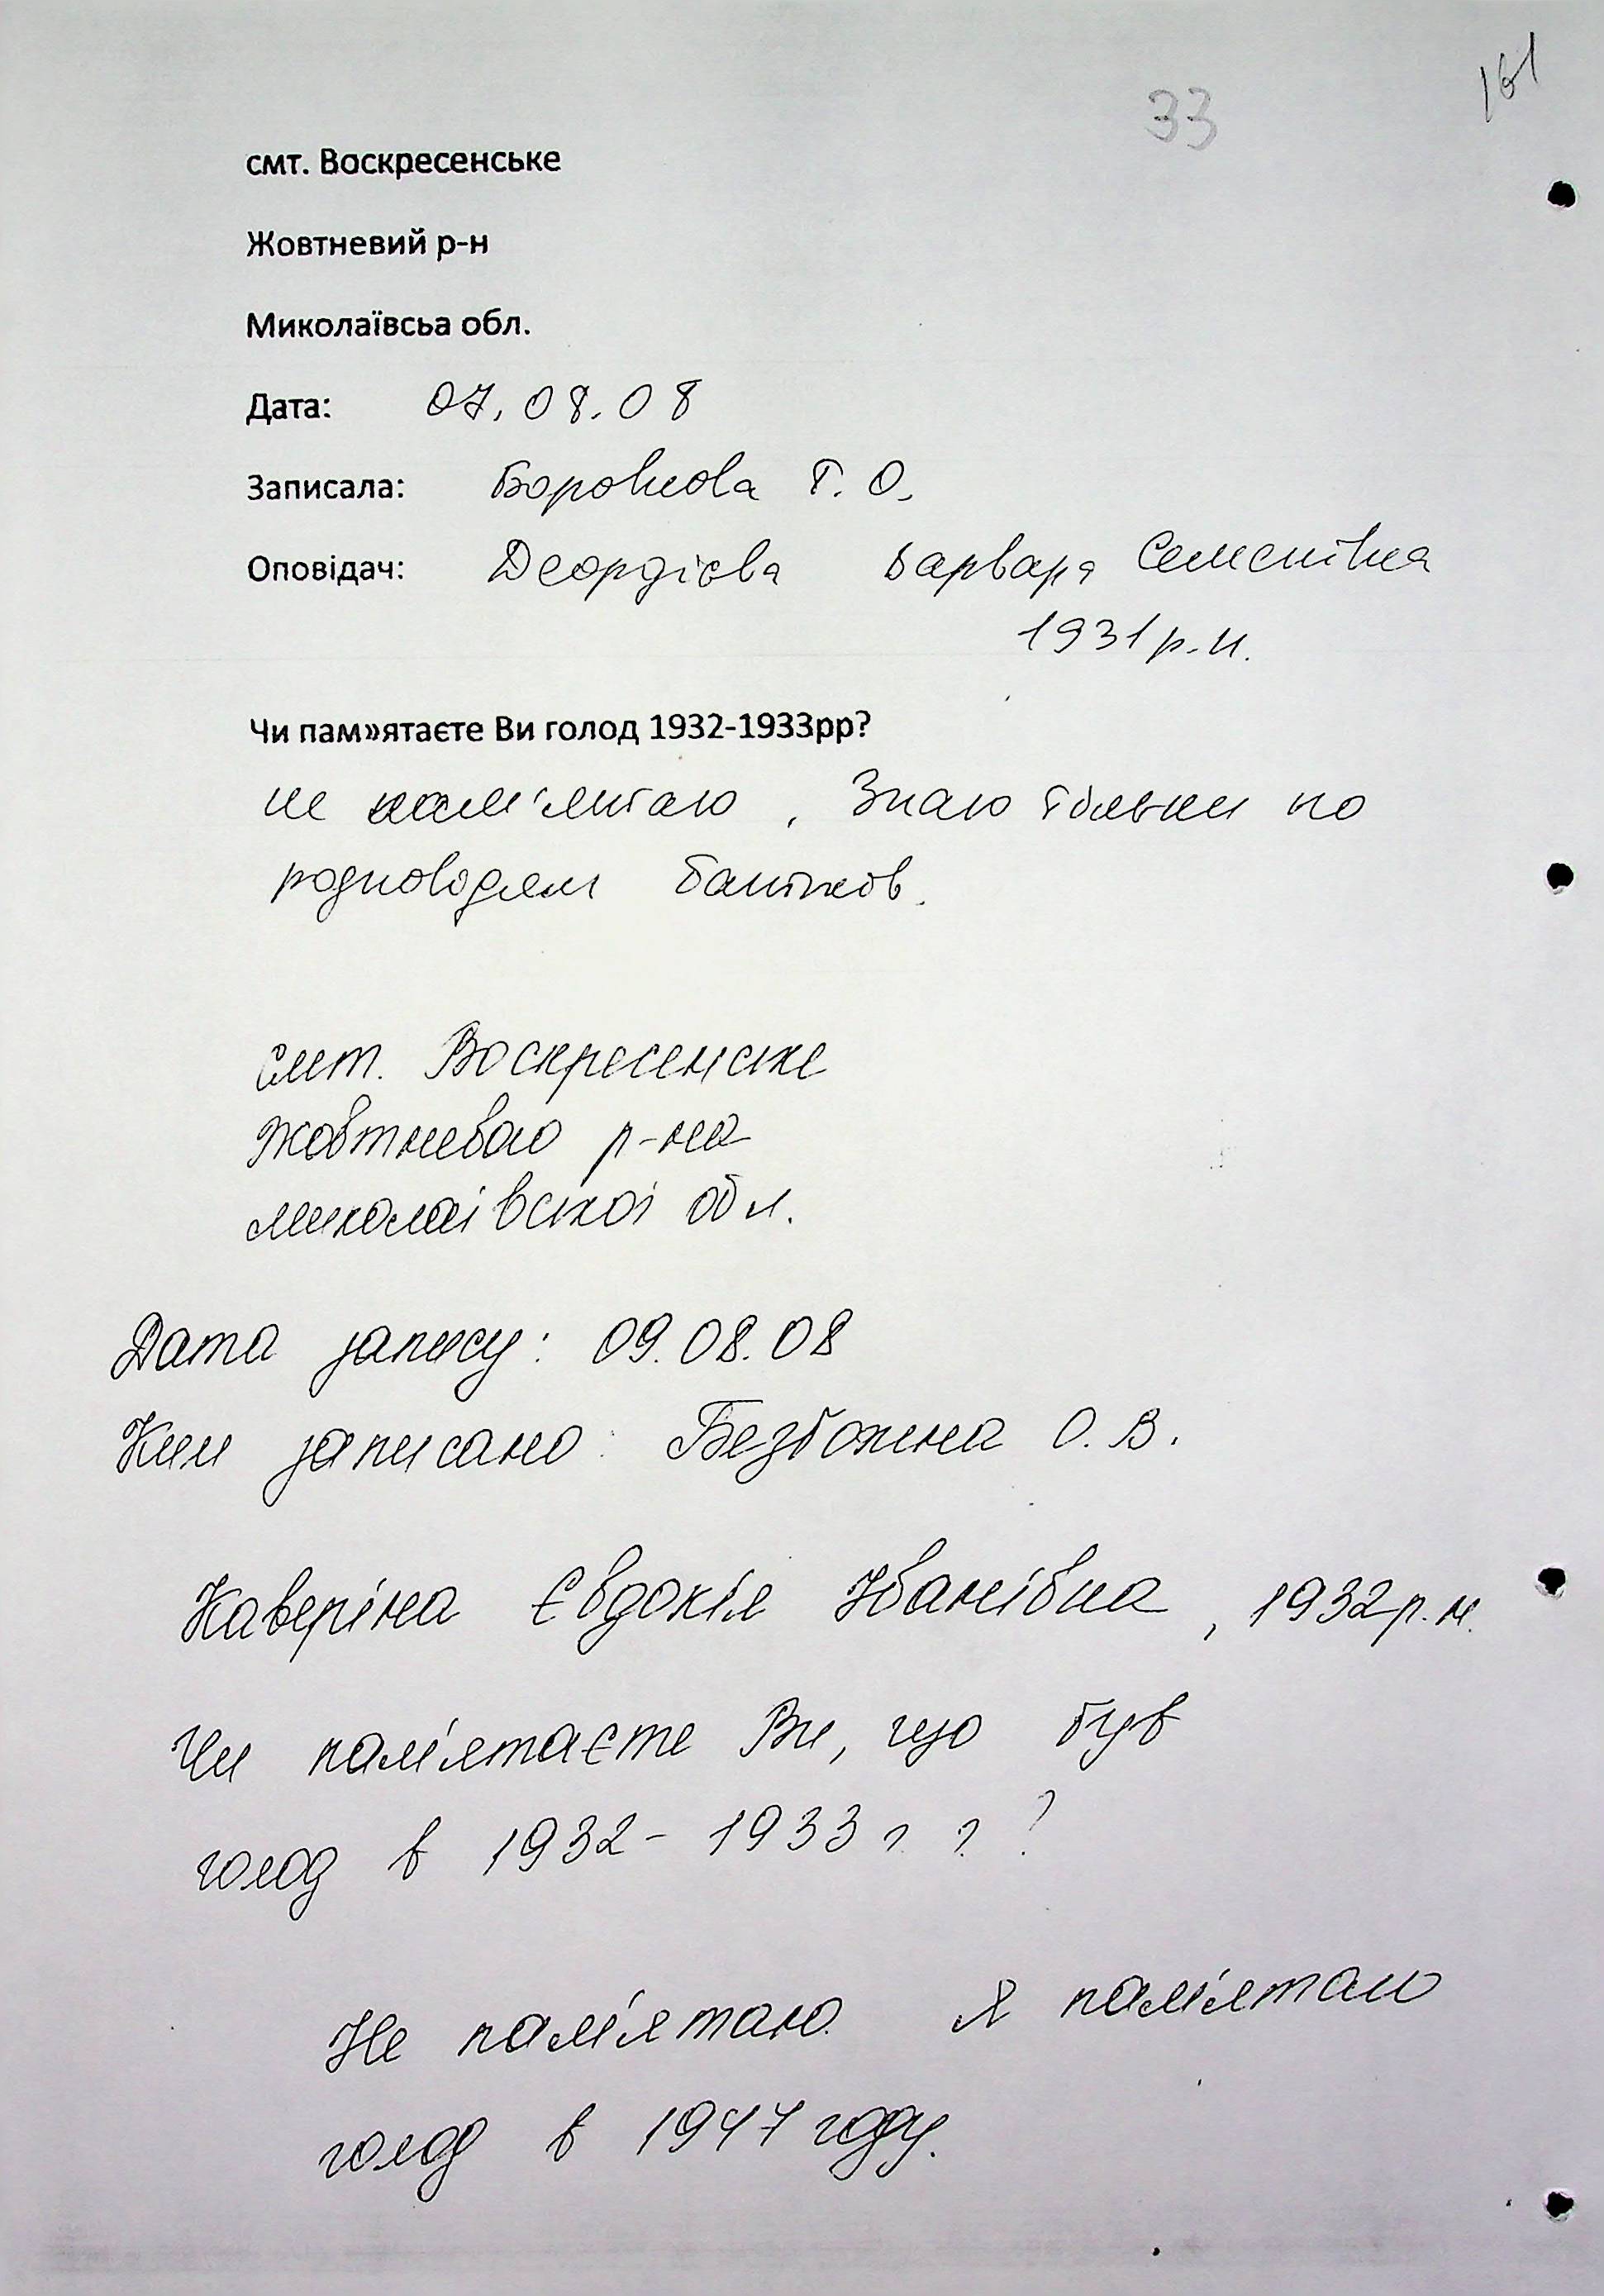 33
161
смт. Воскресенське
Жовтневий р-н
Миколаївсьа обл.
Дата: 07.08.08
Записала: Боровкова Т. О.
Оповідач: Деордієва Варвара Семенівна
1931 р.н.
Чи пам»ятаєте Ви голод 1932-1933рр?
не пам'ятаю, Знаю тільки по
розповідям батьків.
смт. Воскресенське
Жовтневого р-на
Миколаівскоі обл.
Дата запису: 09.08.08
Ким записано: Безбожна О. В.
Каверіна Євдокія Іванівна, 1932 р.н.
Чи пам'ятаєте Ви, що був
голод в 1932-1933 г г?
Не пам'ятаю. Я пам'ятаю
голод в 1947 году.